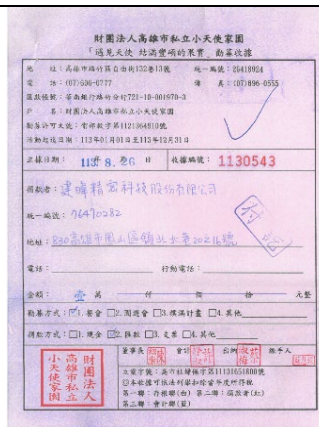 財團法人高雄市私立小天使家園
「遇見天使 結滿豐碩的果實」勸募收據
地 址：高雄市路竹區自由街132巷13號 統一編號：26419824
電 話：(07)696-6777 傳 真：(07)896-0555
匯款帳號：華南銀行路竹分行721-10-001970-3
戶 名：財團法人高雄市私立小天使家園
勸募許可文號：衛部救字第1121364910號
活動起迄日期：113年01月01日至113年12月31日
立據日期：113年 8. 26 日 收據編號：1130543
捐款者：建暐精密科技股份有限公司
統一編號：96470282
地址：830高雄市鳳山區鎮北北巷20之16號
付訖
電話： 行動電話：
金額： 壹 萬 仟 佰 拾 元整
勸募方式：☑1.餐會 □2.園遊會 □3.撲滿計畫 □4.其他
捐款方式：□1.現金 ☑2.匯款 □3.支票 □4.其他
財團法人
高雄市私立
小天使家園
董事長 會計 出納 經手人
立案字號：高市社婦保字第11131651800號
◎本收據可依法列舉扣除當年度所得稅
第一聯：存根聯(白) 第二聯：捐款者(紅)
第三聯：會計聯(藍)